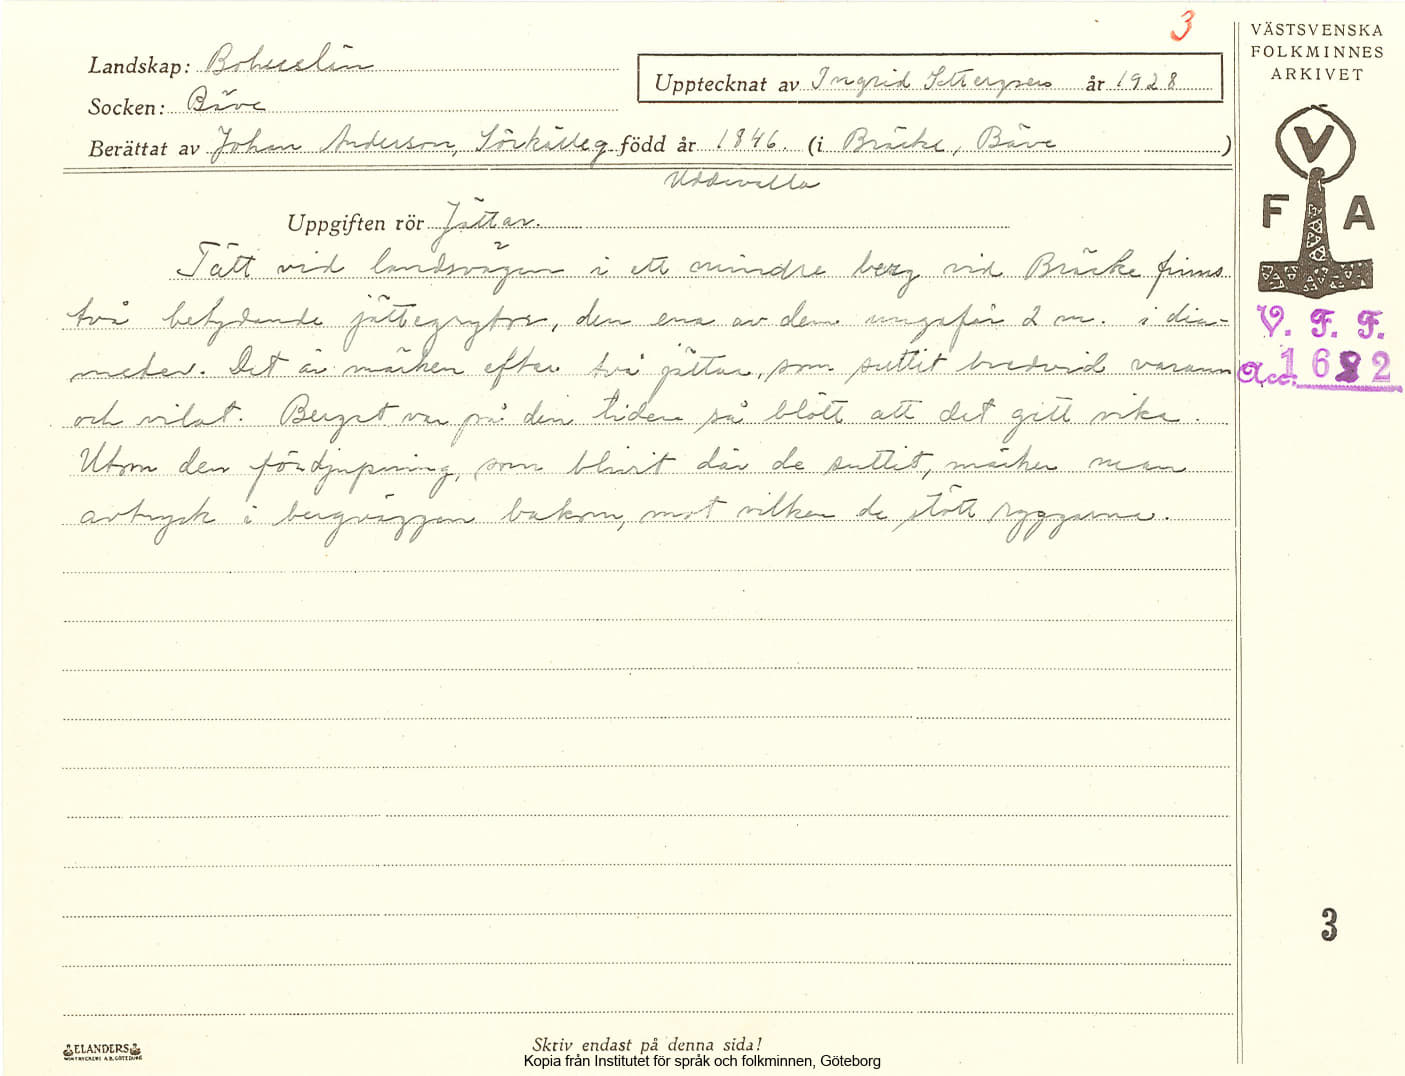 3
VÄSTSVENSKA
FOLKMINNES
ARKIVET
Landskap: Bohuslän
Upptecknat av Ingrid år 1928
Socken: Bäve
Berättat av Johan Anderson, född år 1846. (i Bräcke, Bäve)
Uddevalla
Uppgiften rör Jättar.
V
F A
Tätt vid landsvägen i ett mindre berg vid Bräcke finns
två betydande jättegrytor, den ena av dem ungefär 2 m. i dia-
meter. Det är märken efter två jättar, som suttit bredvid varann
och vilat. Berget var på den tiden så blött att det gett vika.
Utom den fördjupning, som blivit där de suttit, märker man
avtryck i bergväggen bakom, mot vilken de stött ryggarna.
V. F. F.
Acc. 1682
3
ELANDERS
Skriv endast på denna sida!
Kopia från Institutet för språk och folkminnen, Göteborg